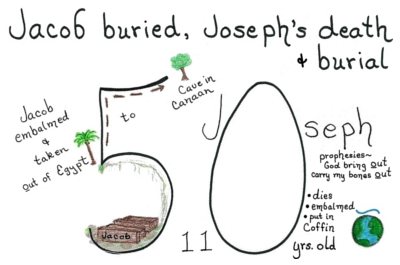 Jacob buried, Joseph's death
& burial
Jacob
embalmed
&
taken
out of Egypt
to
Cave in
Canaan
50
Jacob
J seph
prophesies~
God bring out
carry my bones out
• dies
• embalmed
• put in
Coffin
110 yrs. old